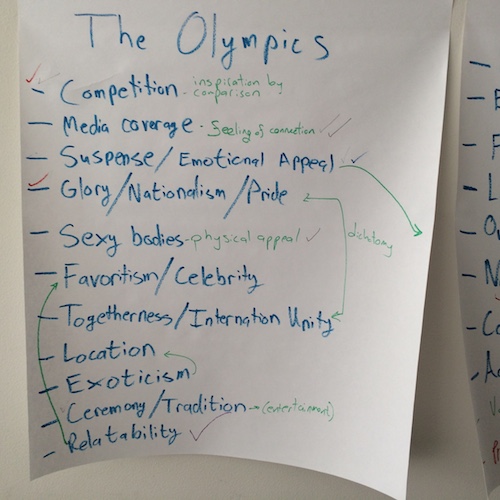 The Olympics
– Competition - inspiration by comparison
– Media coverage - feeling of connection
– Suspense/Emotional Appeal
– Glory/Nationalism/Pride
– Sexy bodies - physical appeal
dichotomy
– Favoritism/Celebrity
– Togetherness/Internation Unity
– Location
– Exoticism
– Ceremony/Tradition → (entertainment)
– Relatability